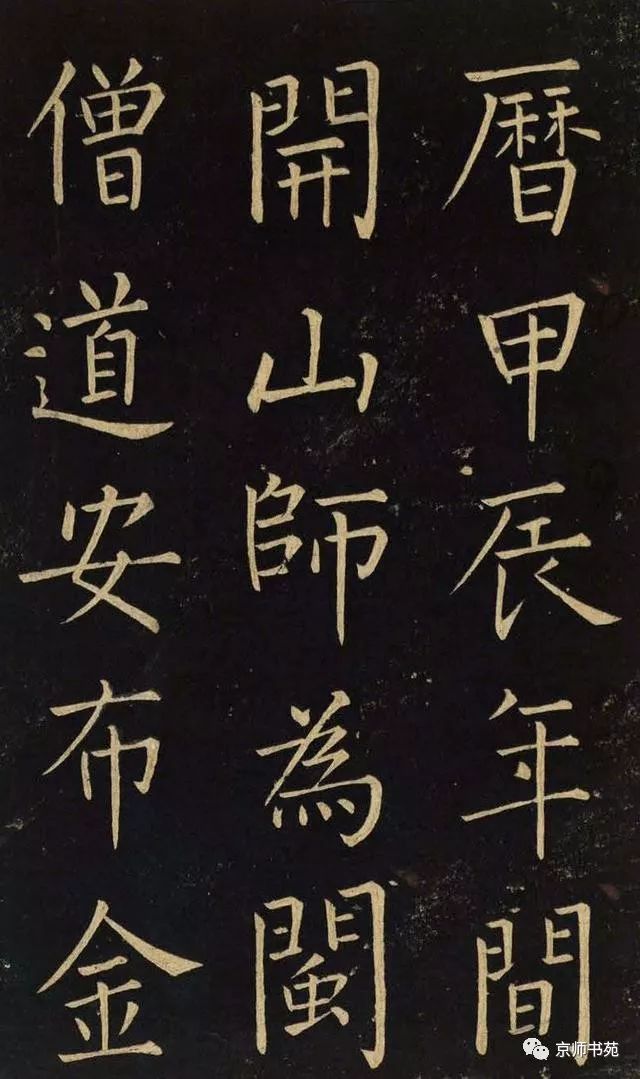 曆甲辰年間
開山師為閩
僧道安布金
京师书苑